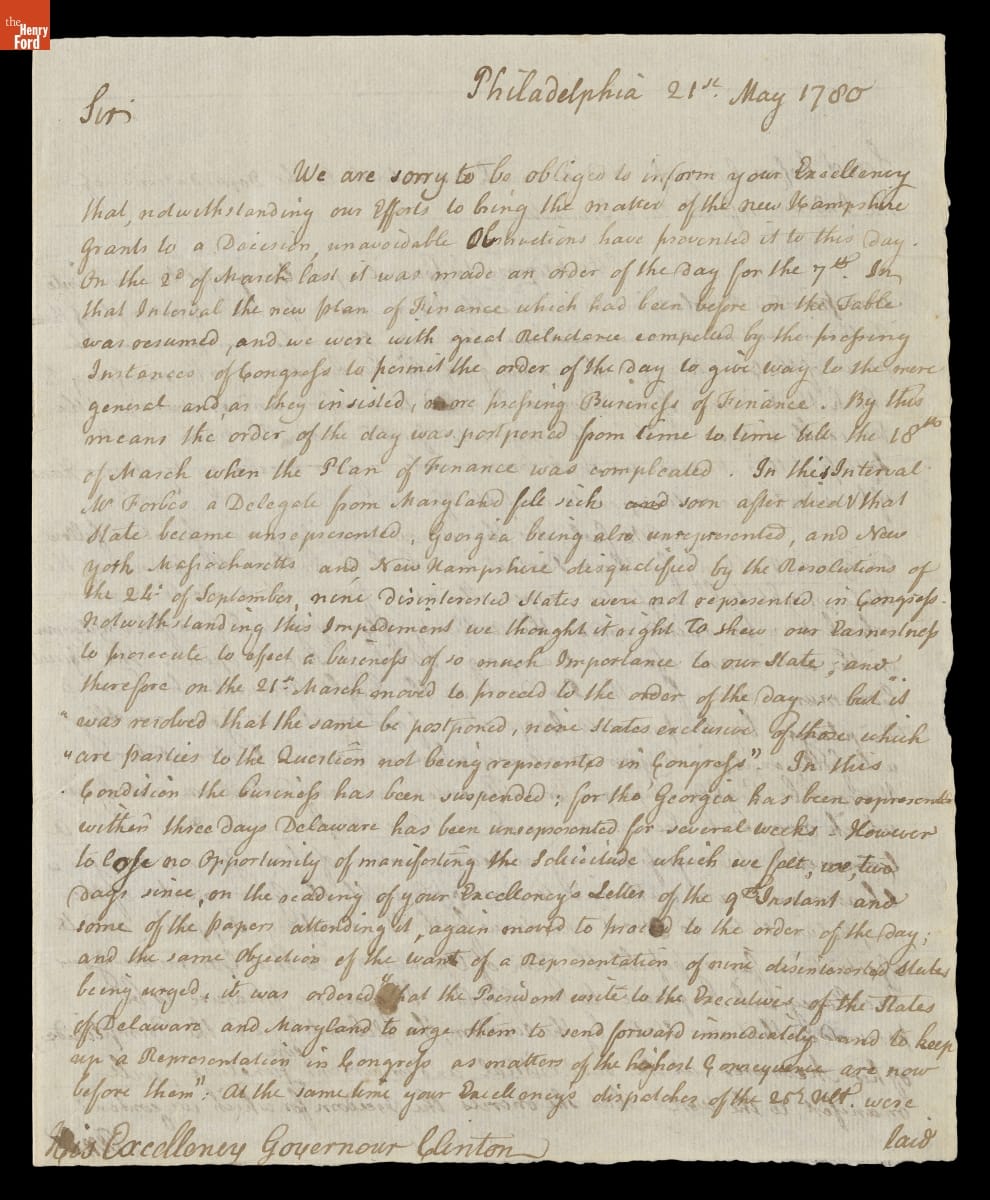 the
Henry
Ford
Philadelphia 21st. May 1780
Sir
We are sorry to be obliged to inform your Excellency
that, notwithstanding our Efforts to bring the matter of the new Hampshire
Grants to a Decision, unavoidable Obstructions have prevented it to this day.
On the 2d of March last it was made an order of the day for the 7th. In
that Interval the new plan of Finance which had been before on the Table
was resumed, and we were with great Reluctance compelled by the pressing
Instances of Congress to permit the order of the day to give way to the more
general and, as they insisted, more pressing Business of Finance. By this
means the order of the day was postponed from time to time till the 18th
of March when the Plan of Finance was compleated. In this Interval
Mr Forbes a Delegate from Maryland fell sick and soon after died & that
State became unrepresented, Georgia being also unrepresented, and New
york Massachusetts and New Hampshire disqualified by the Resolutions of
the 24t of September, nine disinterested States were not represented in Congress.
Notwithstanding this Impediment we thought it right to shew our Earnestness
to prosecute to effect a business of so much Importance to our State; and
therefore on the 21st March moved to proceed to the order of the day, but "it
"was resolved that the same be postponed, nine States exclusive of those which
"are parties to the Question not being represented in Congress". In this
Condition the business has been suspended; for tho' Georgia has been represented
within three days Delaware has been unrepresented for several weeks. However
to lose no Opportunity of manifesting the Solicitude which we felt, we, two
days since, on the reading of your Excellency's Letter of the 9th Instant and
some of the papers attending it, again moved to proceed to the order of the day;
and the same Objection of the want of a Representation of nine disinterested States
being urged, it was ordered "that the President write to the Executives of the States
of Delaware and Maryland to urge them to send forward immediately and to keep
up a Representation in Congress as matters of the highest Consequence are now
before them". At the same time your Excellency's dispatches of the 25 Ult. were
laid
His Excellency Governour Clinton